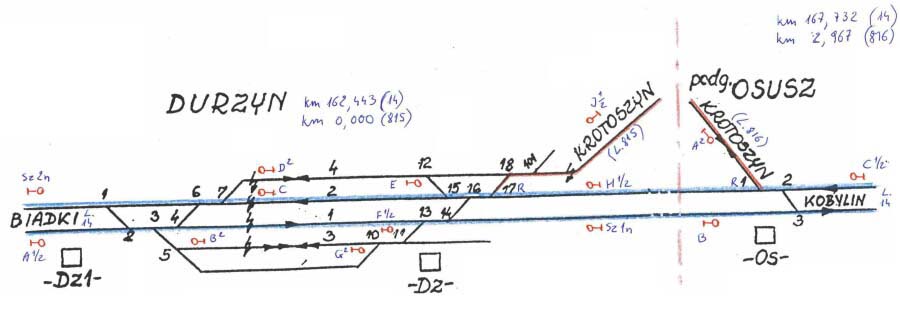 km 167,732 (14)
km 2,967 (816)
DURZYN km 162,443 (14)
km 0,000 (815)
podg. OSUSZ
J 1/2
KROTOSZYN
(L.815)
KROTOSZYN
(L.816)
A²
Sz2n
D²
4
12
18
401
C 1/2
1
6
7
C
2
E
15
16
17R
H 1/2
R1
2
BIADKI L.14
3
4
1
F 1/2
13
14
KOBYLIN L.14
2
B²
3
10
11
Sz1n
B
3
A 1/2
5
G²
-Dz1-
-Dz-
-Os-